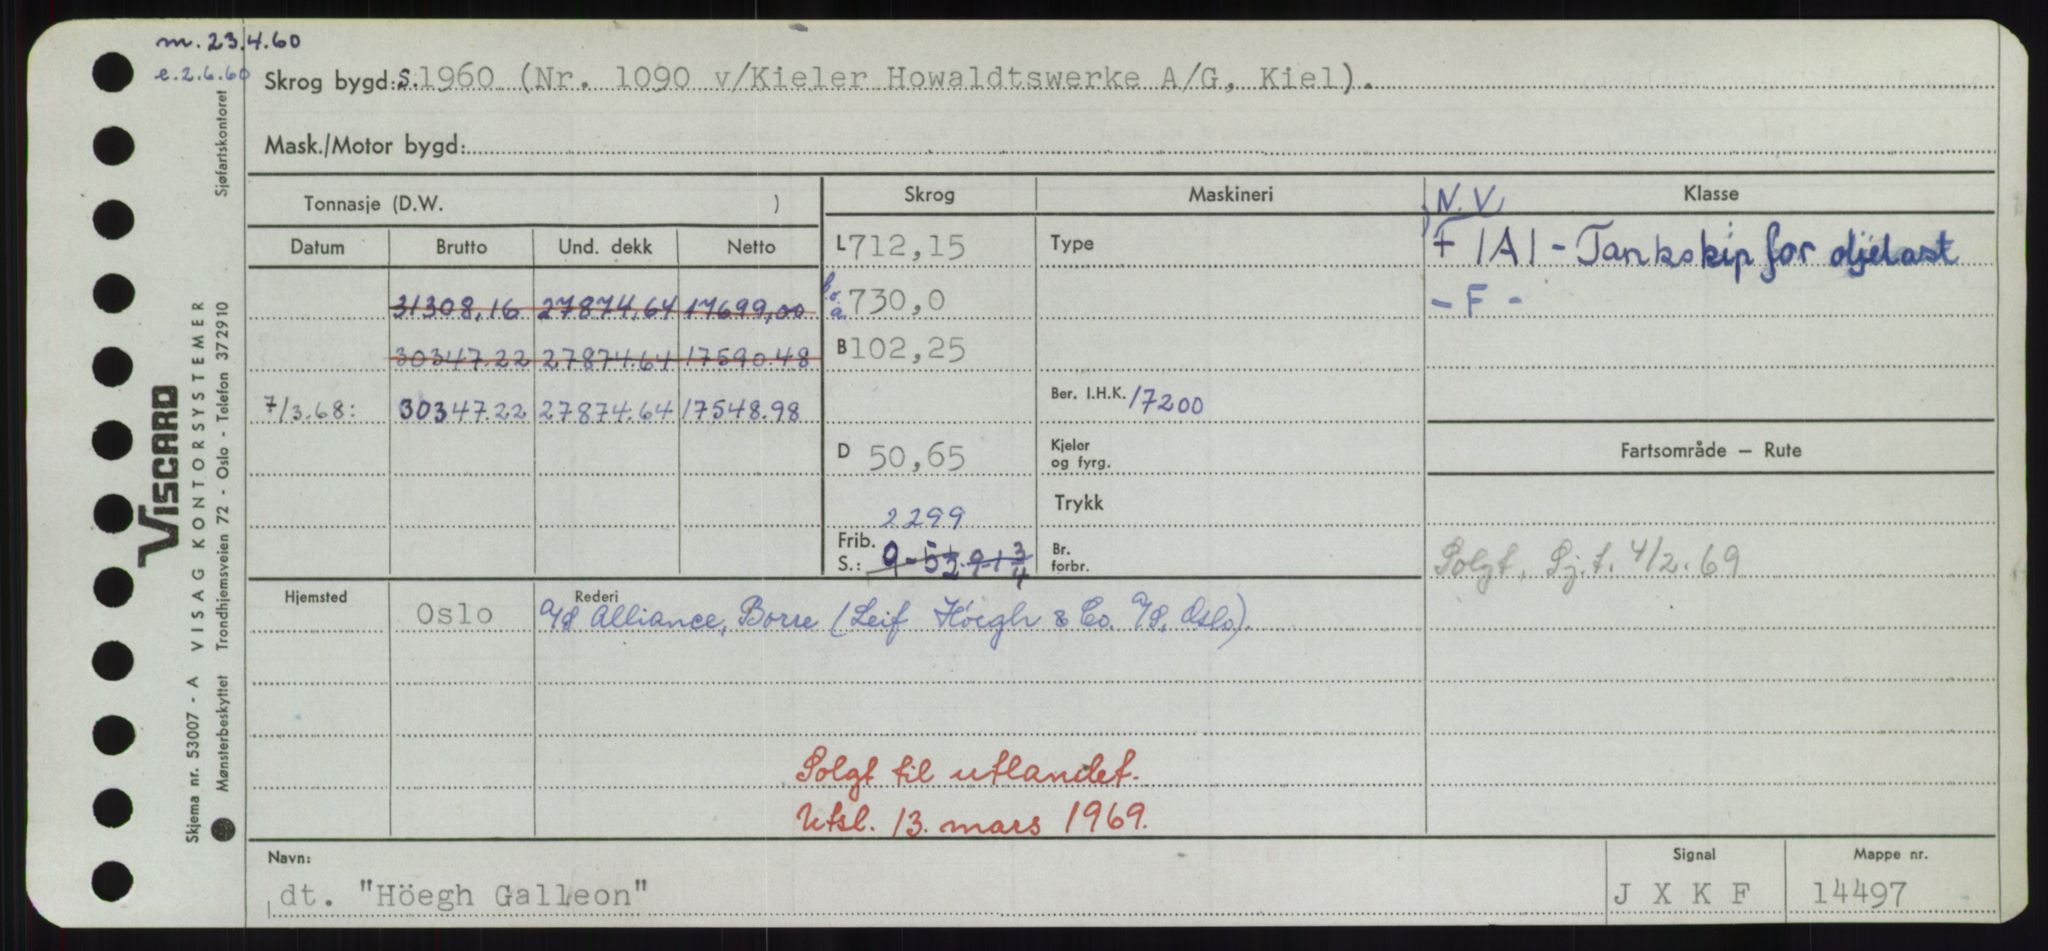 m. 23.4.60
e. 2.6.60
Skrog bygd: S. 1960 (Nr. 1090 v/Kieler Howaldtswerke A/G, Kiel).
Mask./Motor bygd:
Tonnasje (D.W. ) Skrog Maskineri Klasse
Datum Brutto Und. dekk Netto
N.V.
L 712,15 Type + 1A1 - Tankskip for oljelast
31308,16 27874,64 17699,00 b.o.a. 730,0 - F -
30347.22 27874.64 17590.48 B 102,25
7/3.68: 30347.22 27874.64 17548.98 Ber. I.H.K. 17200
D 50,65 Kjeler og fyrg. Fartsområde – Rute
2299 Trykk
Frib. S.: 9-5½ 9-1¾ Br. forbr. Solgt, Sj.t. 4/2.69
Hjemsted Oslo Rederi A/S Alliance, Borre (Leif Höegh & Co. A/S, Oslo).
Solgt til utlandet.
Utsl. 13. mars 1969.
Navn: Signal Mappe nr.
dt. "Höegh Galleon" J X K F 14497
VISCARD
Skjema nr. 53007 - A VISAG KONTORSYSTEMER
Mønsterbeskyttet Trondhjemsveien 72 - Oslo - Telefon 372910 Sjøfartskontoret